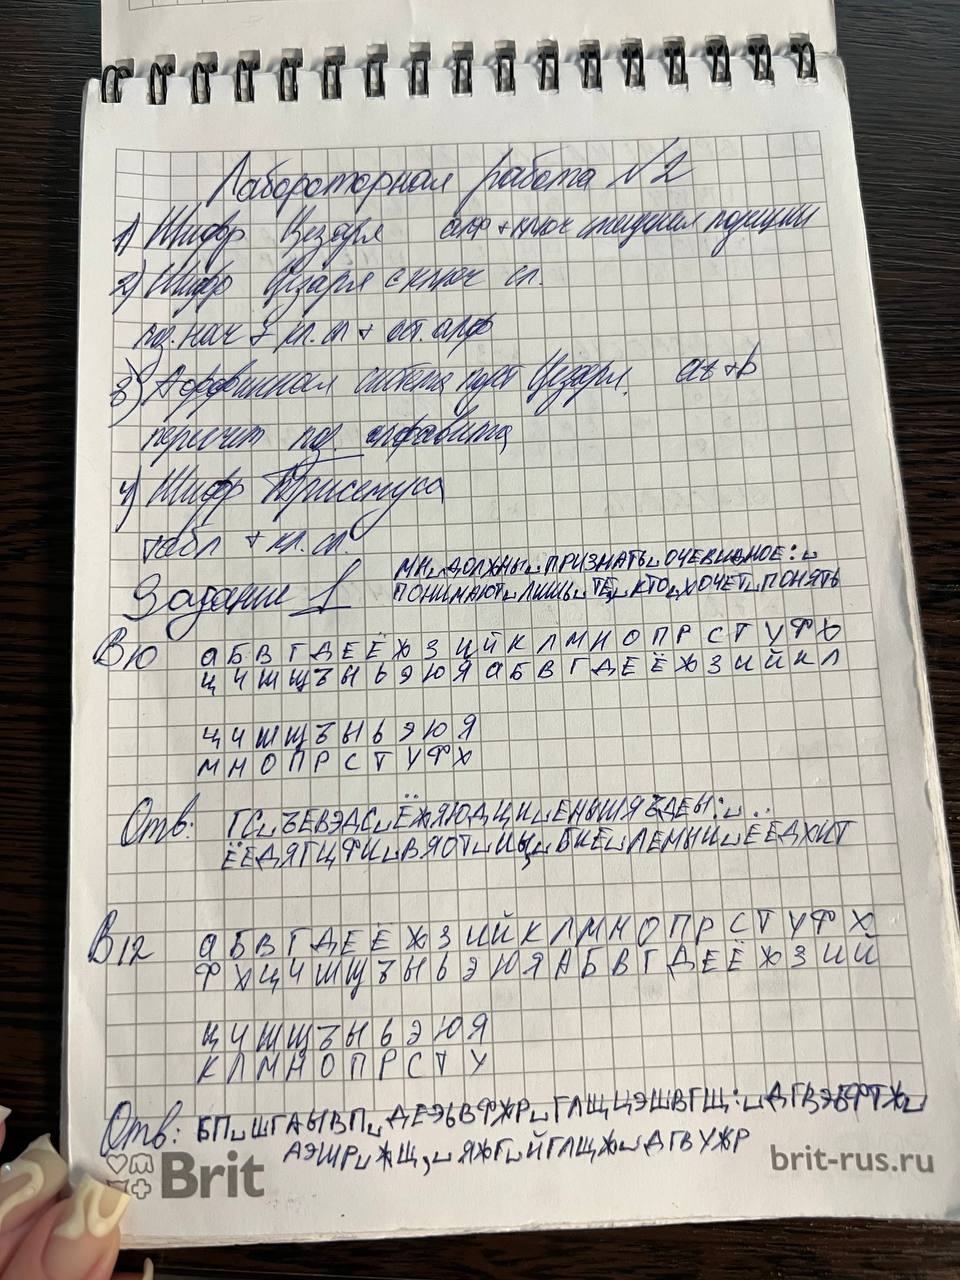 Лабороторная работа №2
1) Шифр Цезаря алф + ключ смещения позиции
2) Шифр Цезаря с ключ сл.
поз. нач 7 кл. сл + ост. алф
3) Аффинная система подст Цезаря. at+b
пересчит поз. алфавита
4) Шифр Трисемуса
табл + кл. сл.
Задание 1
МЫ␣ДОЛЖНЫ␣ПРИЗНАТЬ␣ОЧЕВИДНОЕ:␣
ПОНИМАЮТ␣ЛИШЬ␣ТЕ,␣КТО␣ХОЧЕТ␣ПОНЯТЬ
В10 А Б В Г Д Е Ё Ж З И Й К Л М Н О П Р С Т У Ф Х
Ц Ч Ш Щ Ъ Ы Ь Э Ю Я А Б В Г Д Е Ё Ж З И Й К Л
Ц Ч Ш Щ Ъ Ы Ь Э Ю Я
М Н О П Р С Т У Ф Х
Отв: ГС␣ЪЕВЭДС␣ЁЖЯЮДЦИ␣ЕНЫШЯЪДЕЫ:␣
ЁЕДЯГЦФИ␣ВЯОТ␣ИЫ,␣БИЕ␣ЛЕМЫИ␣ЁЕДХИТ
В12 А Б В Г Д Е Ё Ж З И Й К Л М Н О П Р С Т У Ф Х
Ф Х Ц Ч Ш Щ Ъ Ы Ь Э Ю Я А Б В Г Д Е Ё Ж З И Й
Ц Ч Ш Щ Ъ Ы Ь Э Ю Я
К Л М Н О П Р С Т У
Отв: БП␣ШГАЫВП␣ДЕЭЬВФЖР␣ГЛЩЦЭШВГЩ:␣ДГВЭБФТЖ␣
АЭШР␣ЖЩ,␣ЯЖГ␣ЙГЛЩЖ␣ДГВУЖР
Brit
brit-rus.ru